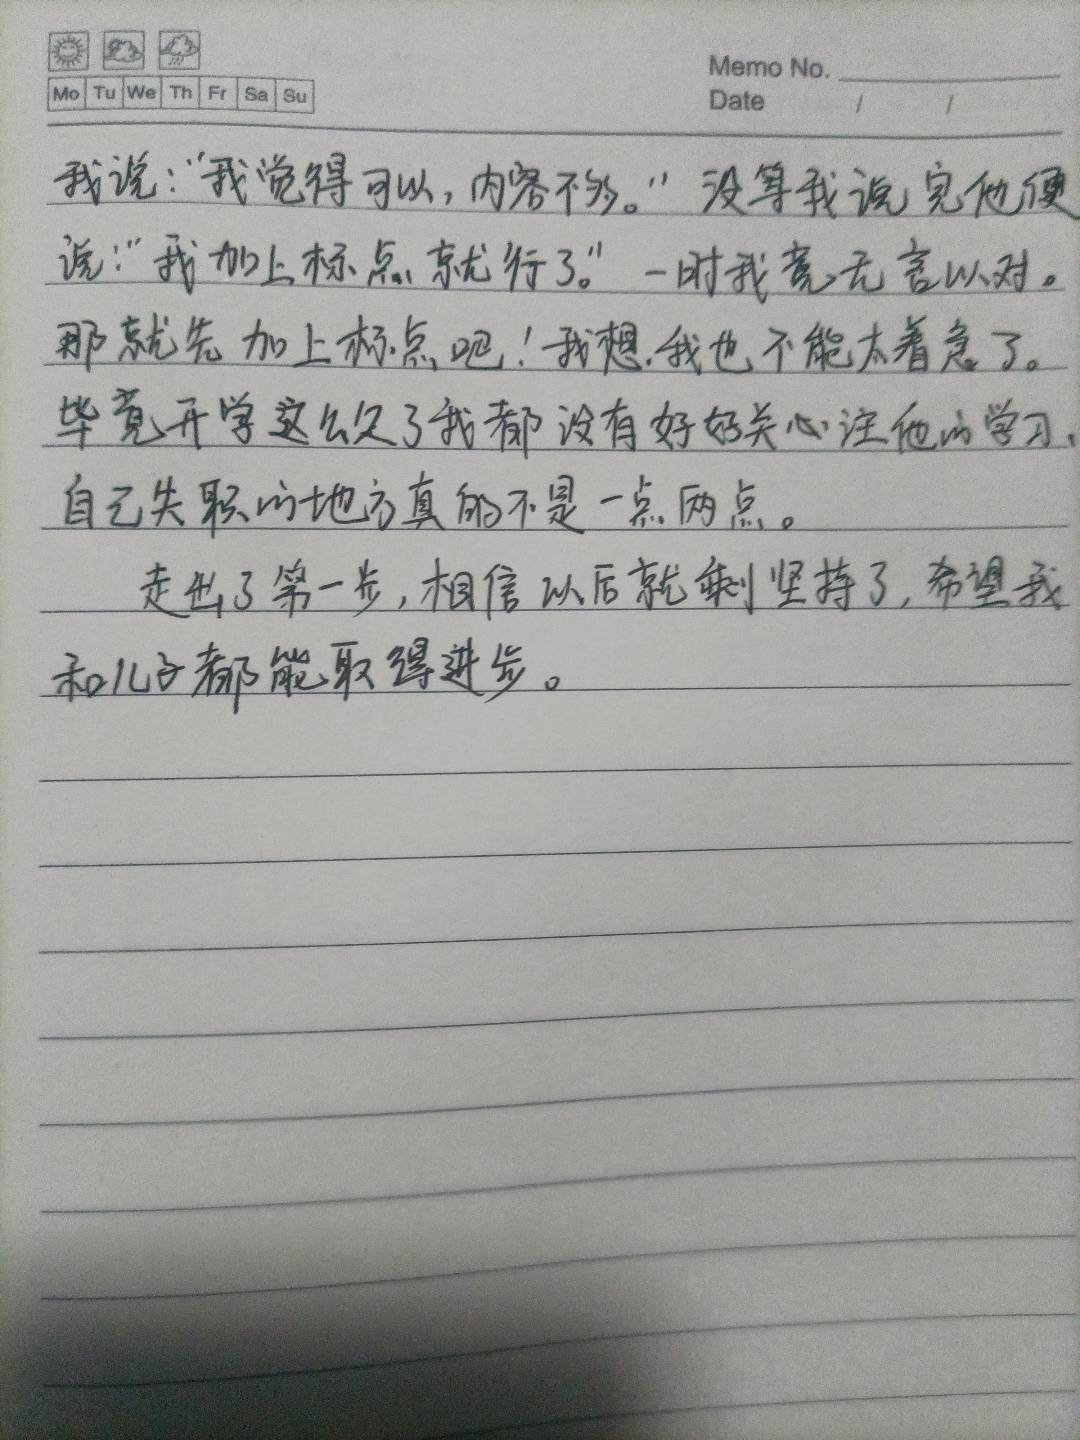 Mo Tu We Th Fr Sa Su
Memo No.
Date / /
我说:“我觉得可以,内容不够。”没等我说完他便
说:“我加上标点就行了。”一时我竟无言以对。
那就先加上标点吧!我想,我也不能太着急了。
毕竟开学这么久了我都没有好好关心注他的学习,
自己失职的地方真的不是一点两点。
走出了第一步,相信以后就剩坚持了,希望我
和儿子都能取得进步。